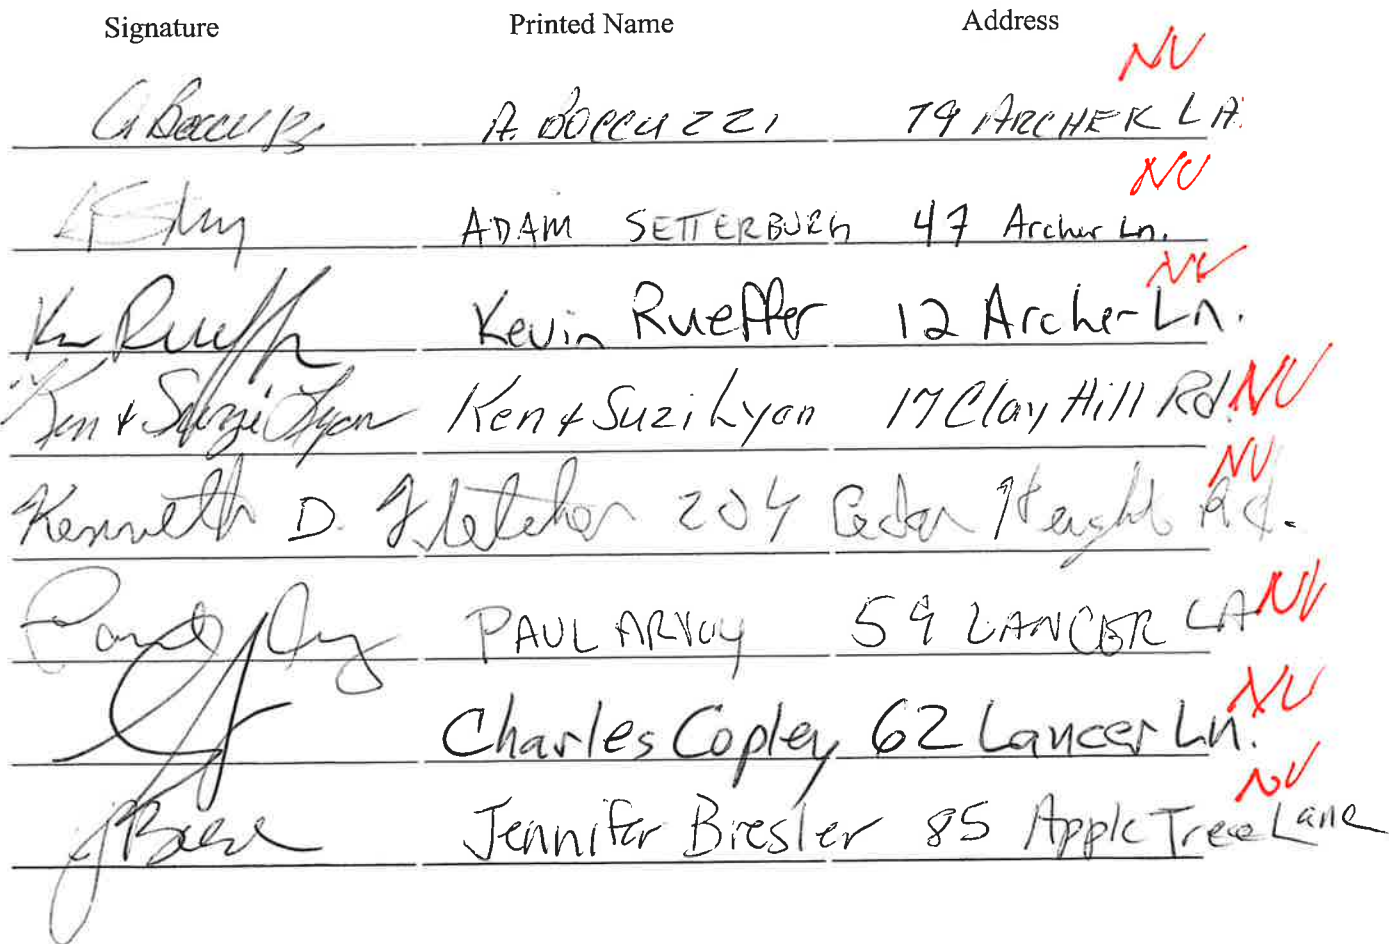 Signature Printed Name Address
NV
A. BOCCUZZI 79 ARCHER LA.
NV
ADAM SETTERBURG 47 Archer Ln.
NV
Kevin Rueffer 12 Archer Ln.
Ken & Suzi Lyon Ken & Suzi Lyon 17 Clay Hill Rd. NV
NV
Kenneth D. Fletcher 204 Cedar Heights Rd.
PAUL ARVOY 59 LANCER LA NV
NV
Charles Copley 62 Lancer Ln.
NV
Jennifer Bresler 85 Apple Tree Lane